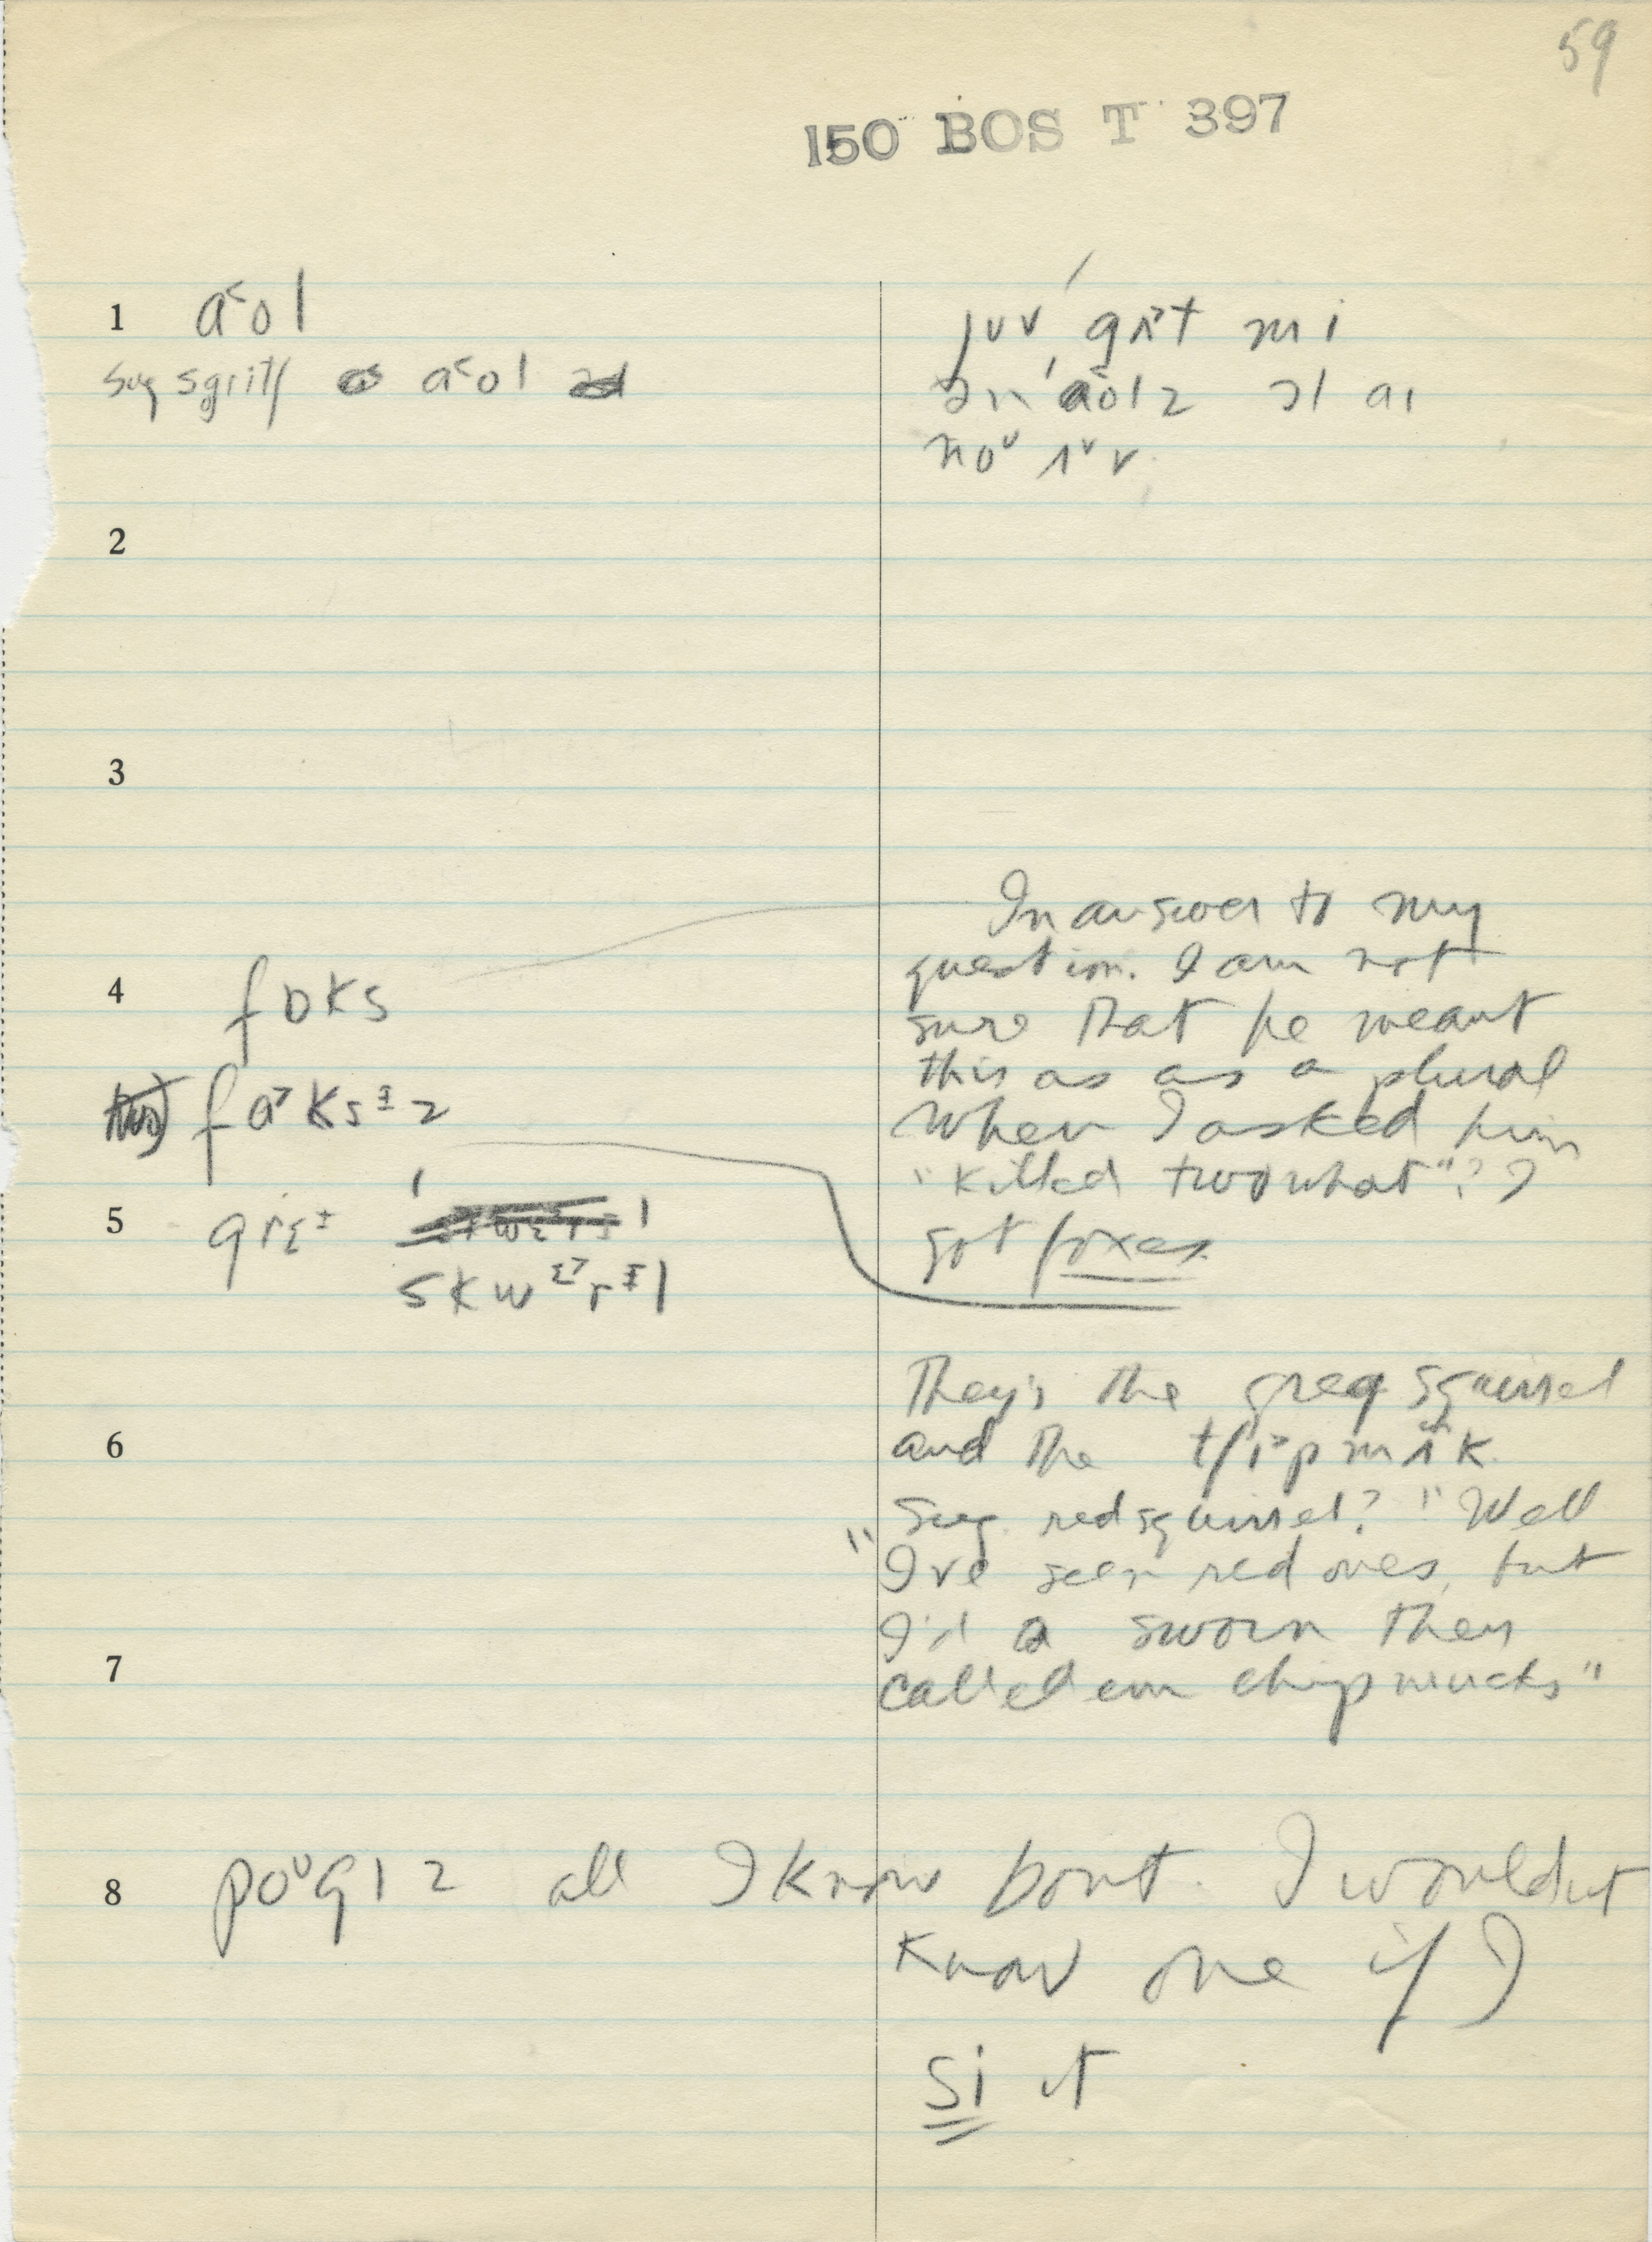 59
150 BOS T 397
1 a˂ol
sug sgritʃ a˂ol
juv gʌ˃t mi
ɔn aolz ɔl aɪ
noᵛ ʌᵛv
2
3
4 fɒks
In answer to my
question. I am not
sure that he meant
this as as a plural
When I asked him
"killed two what"? I
got foxes
fa˃ksᵻz
5 grɛᶦ
skwɛ˃rᵻl
They's the grey squirrel
and the tʃɪ˃pmʌ̃k
6
Sug. red squirrel? "Well
I've seen red ones, but
I'd a sworn they
called em chipmucks"
7
8 poᶷglz all I know bout. I wouldnt
know one if I
si it